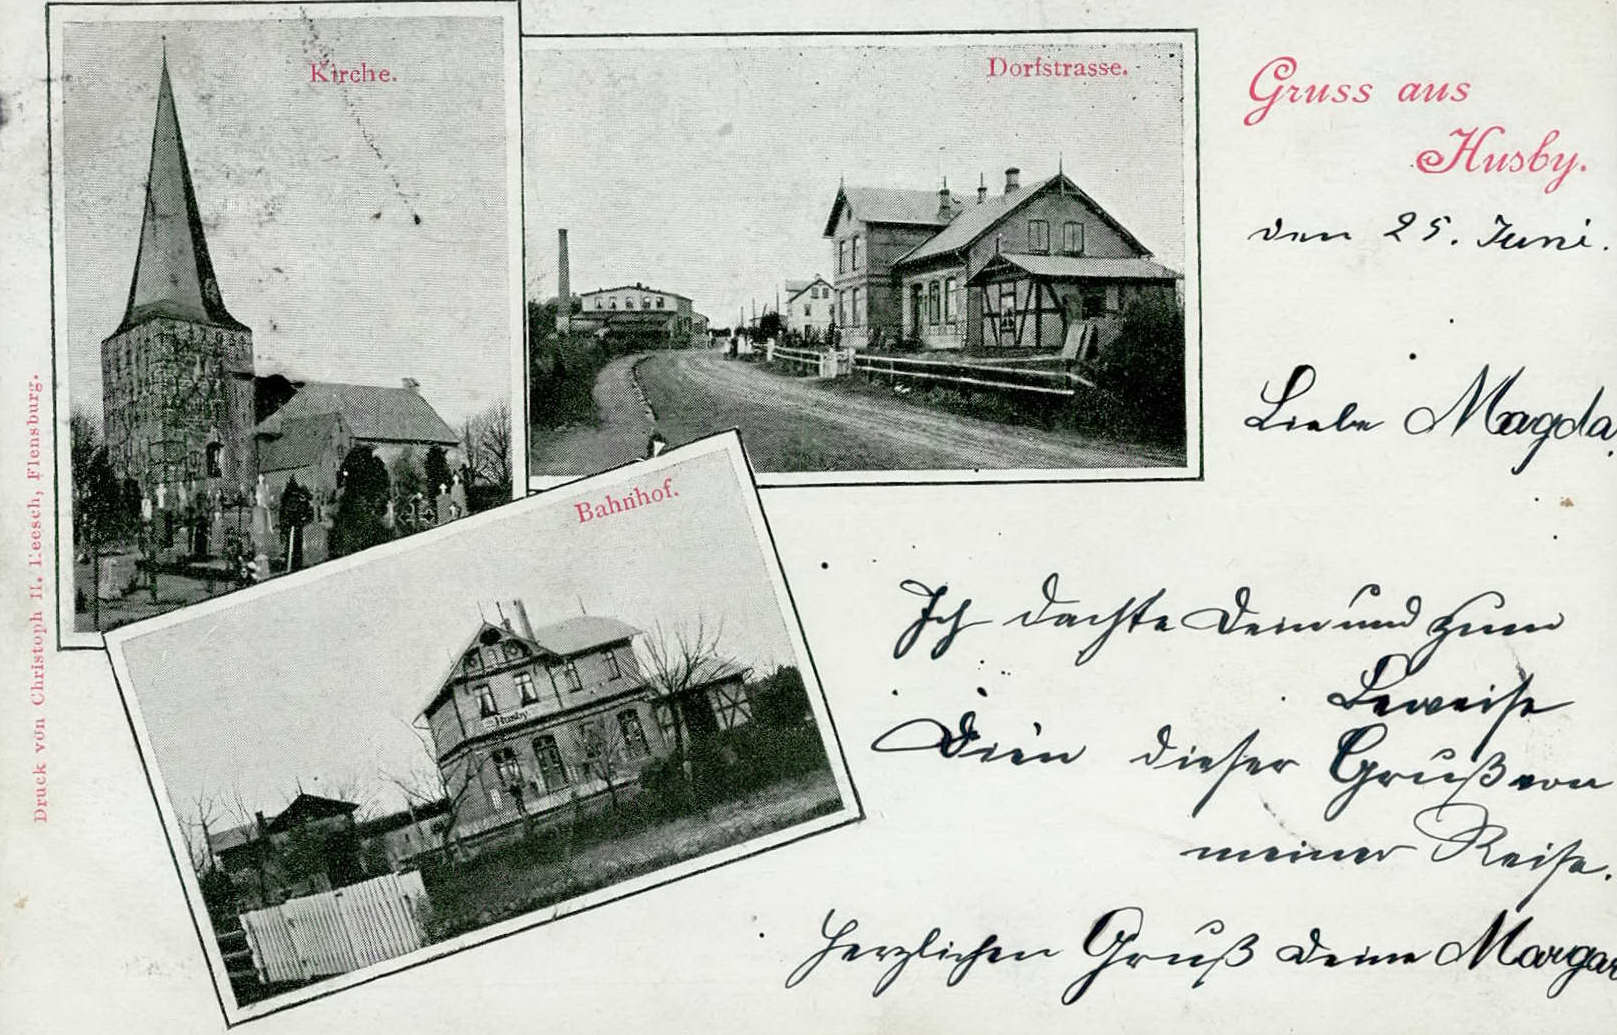 Kirche.
Dorfstrasse.
Gruss aus
Husby.
den 25. Juni.
Liebe Magda,
Bahnhof.
Husby.
Ich dachte Dein und zum
Beweise
Dien dieser Gruß von
meiner Reise.
Herzlichen Gruß Deine Margar
Druck von Christoph H. Leesch, Flensburg.